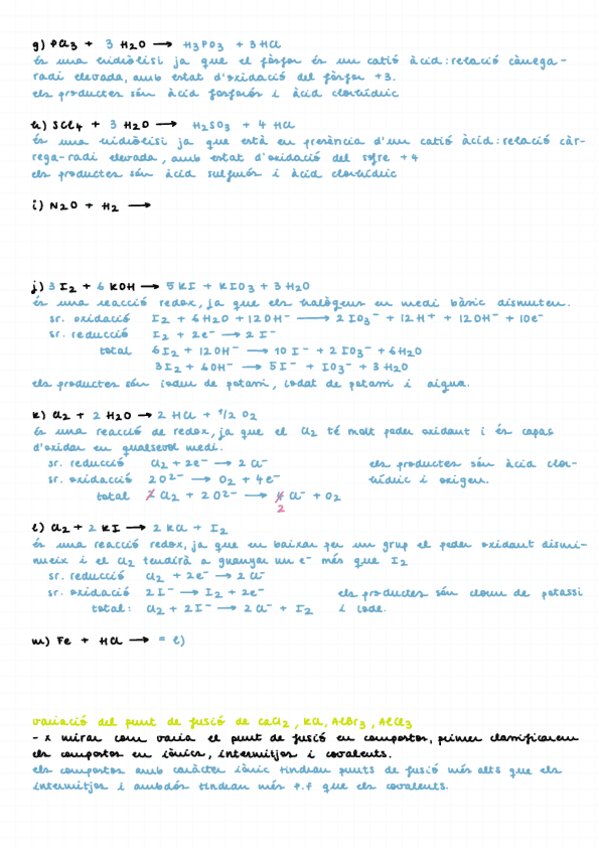 g) PCl3 + 3 H2O → H3PO3 + 3 HCl
és una hidròlisi ja que el fòsfor és un catió àcid: relació càrrega-
radi elevada, amb estat d'oxidació del fòsfor +3.
els productes són àcid fosforós i àcid clorhídric
h) SCl4 + 3 H2O → H2SO3 + 4 HCl
és una hidròlisi ja que està en presència d'un catió àcid: relació càr-
rega-radi elevada, amb estat d'oxidació del sofre +4
els productes són àcid sulfurós i àcid clorhídric
i) N2O + H2 →
j) 3 I2 + 6 KOH → 5 KI + KIO3 + 3 H2O
és una reacció redox, ja que els halògens en medi bàsic dismuten.
sr. oxidació I2 + 6 H2O + 12 OH⁻ → 2 IO3⁻ + 12 H⁺ + 12 OH⁻ + 10e⁻
sr. reducció I2 + 2e⁻ → 2 I⁻
total 6 I2 + 12 OH⁻ → 10 I⁻ + 2 IO3⁻ + 6 H2O
3 I2 + 6 OH⁻ → 5 I⁻ + IO3⁻ + 3 H2O
els productes són iodur de potassi, iodat de potassi i aigua.
k) Cl2 + 2 H2O → 2 HCl + 1/2 O2
és una reacció de redox, ja que el Cl2 té molt poder oxidant i és capaç
d'oxidar en qualsevol medi.
sr. reducció Cl2 + 2e⁻ → 2 Cl⁻ els productes són àcid clor-
sr. oxidació 2 O²⁻ → O2 + 4e⁻ hídric i oxigen.
total 2 Cl2 + 2 O²⁻ → 4 Cl⁻ + O2
2
l) Cl2 + 2 KI → 2 KCl + I2
és una reacció redox, ja que en baixar per un grup el poder oxidant dismi-
nueix i el Cl2 tendirà a guanyar un e⁻ més que I2
sr. reducció Cl2 + 2e⁻ → 2 Cl⁻
sr. oxidació 2 I⁻ → I2 + 2e⁻ els productes són clorur de potassi
total: Cl2 + 2 I⁻ → 2 Cl⁻ + I2 i iode.
m) Fe + HCl → = e)
variació del punt de fusió de CaCl2, KCl, AlBr3, AlCl3
- x mirar com varia el punt de fusió en compostos, primer classificarem
els compostos en iònics, intermitjos i covalents.
els compostos amb caràcter iònic tindran punts de fusió més alts que els
intermitjos i ambdós tindran més p.f que els covalents.